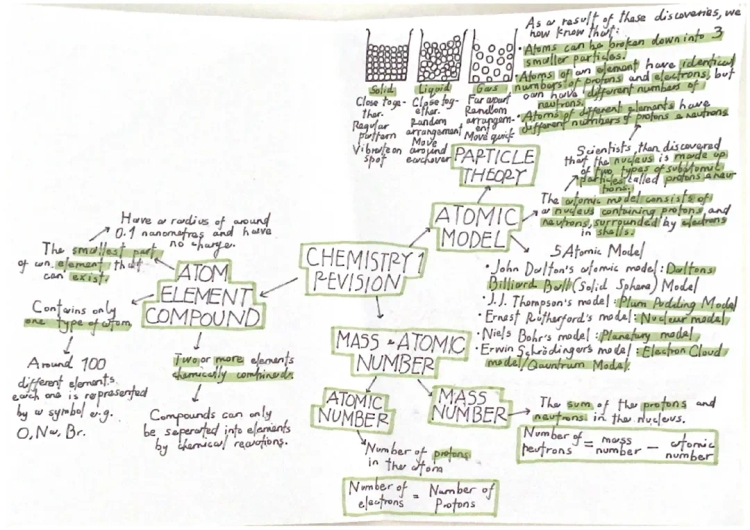 As a result of these discoveries, we
now know that:
• Atoms can be broken down into 3
smaller particles.
• Atoms of an element have identical
numbers of protons and electrons, but
can have different numbers of
neutrons.
• Atoms of different elements have
different numbers of protons & neutrons
Solid
Close toge-
ther.
Regular
pattern
Vibrate on
spot
Liquid
Close tog-
ether.
Random
arrangement
Move
around
eachover
Gas
Far apart
Random
arrangem-
ent
Move quick
PARTICLE
THEORY
Scientists, then discovered
that the nucleus is made up
of two types of subatomic
particles called protons & neu-
trons.
The atomic model consists of
a nucleus containing protons, and
neutrons, surrounded by electrons
in shells.
ATOMIC
MODEL
5 Atomic Model
• John Dalton's atomic model: Daltons
Billiard Ball (Solid Sphere) Model
• J.J. Thompson's model: Plum Pudding Model
• Ernest Rutherford's model: Nuclear model
• Niels Bohr's model: Planetary model
• Erwin Schrödingers model: Electron Cloud
model/Quantum Model
CHEMISTRY 1
REVISION
Have a radius of around
0.1 nanometres and have
no charge.
The smallest part
of an element that
can exist.
ATOM
ELEMENT
COMPOUND
Contains only
one type of atom
Around 100
different elements
each one is represented
by a symbol e.g.
O, Na, Br.
Two or more elements
chemically combined.
Compounds can only
be seperated into elements
by chemical reactions.
MASS & ATOMIC
NUMBER
ATOMIC
NUMBER
Number of protons
in the atom
Number of electrons = Number of Protons
MASS
NUMBER
The sum of the protons and
neutrons in the nucleus.
Number of neutrons = mass number - atomic number